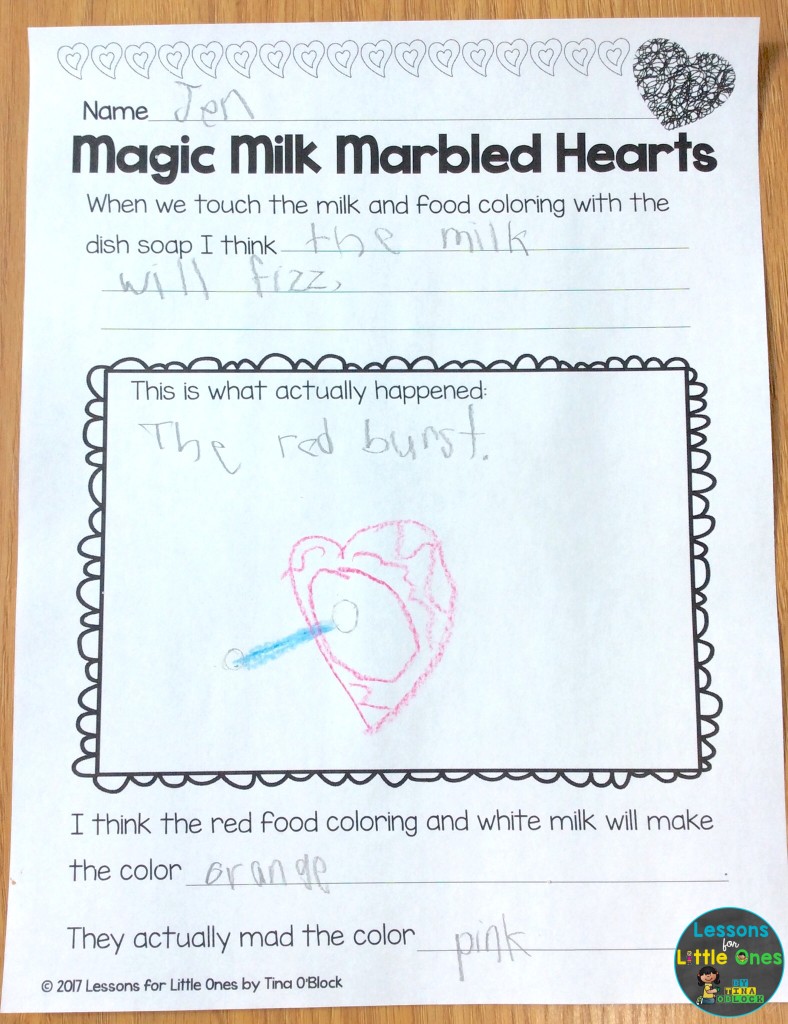 Name Jen
Magic Milk Marbled Hearts
When we touch the milk and food coloring with the
dish soap I think the milk
will fizz,
This is what actually happened:
The red burst.
I think the red food coloring and white milk will make
the color orange
They actually mad the color pink
© 2017 Lessons for Little Ones by Tina O'Block
Lessons
for
Little Ones
BY
TINA
O'BLOCK